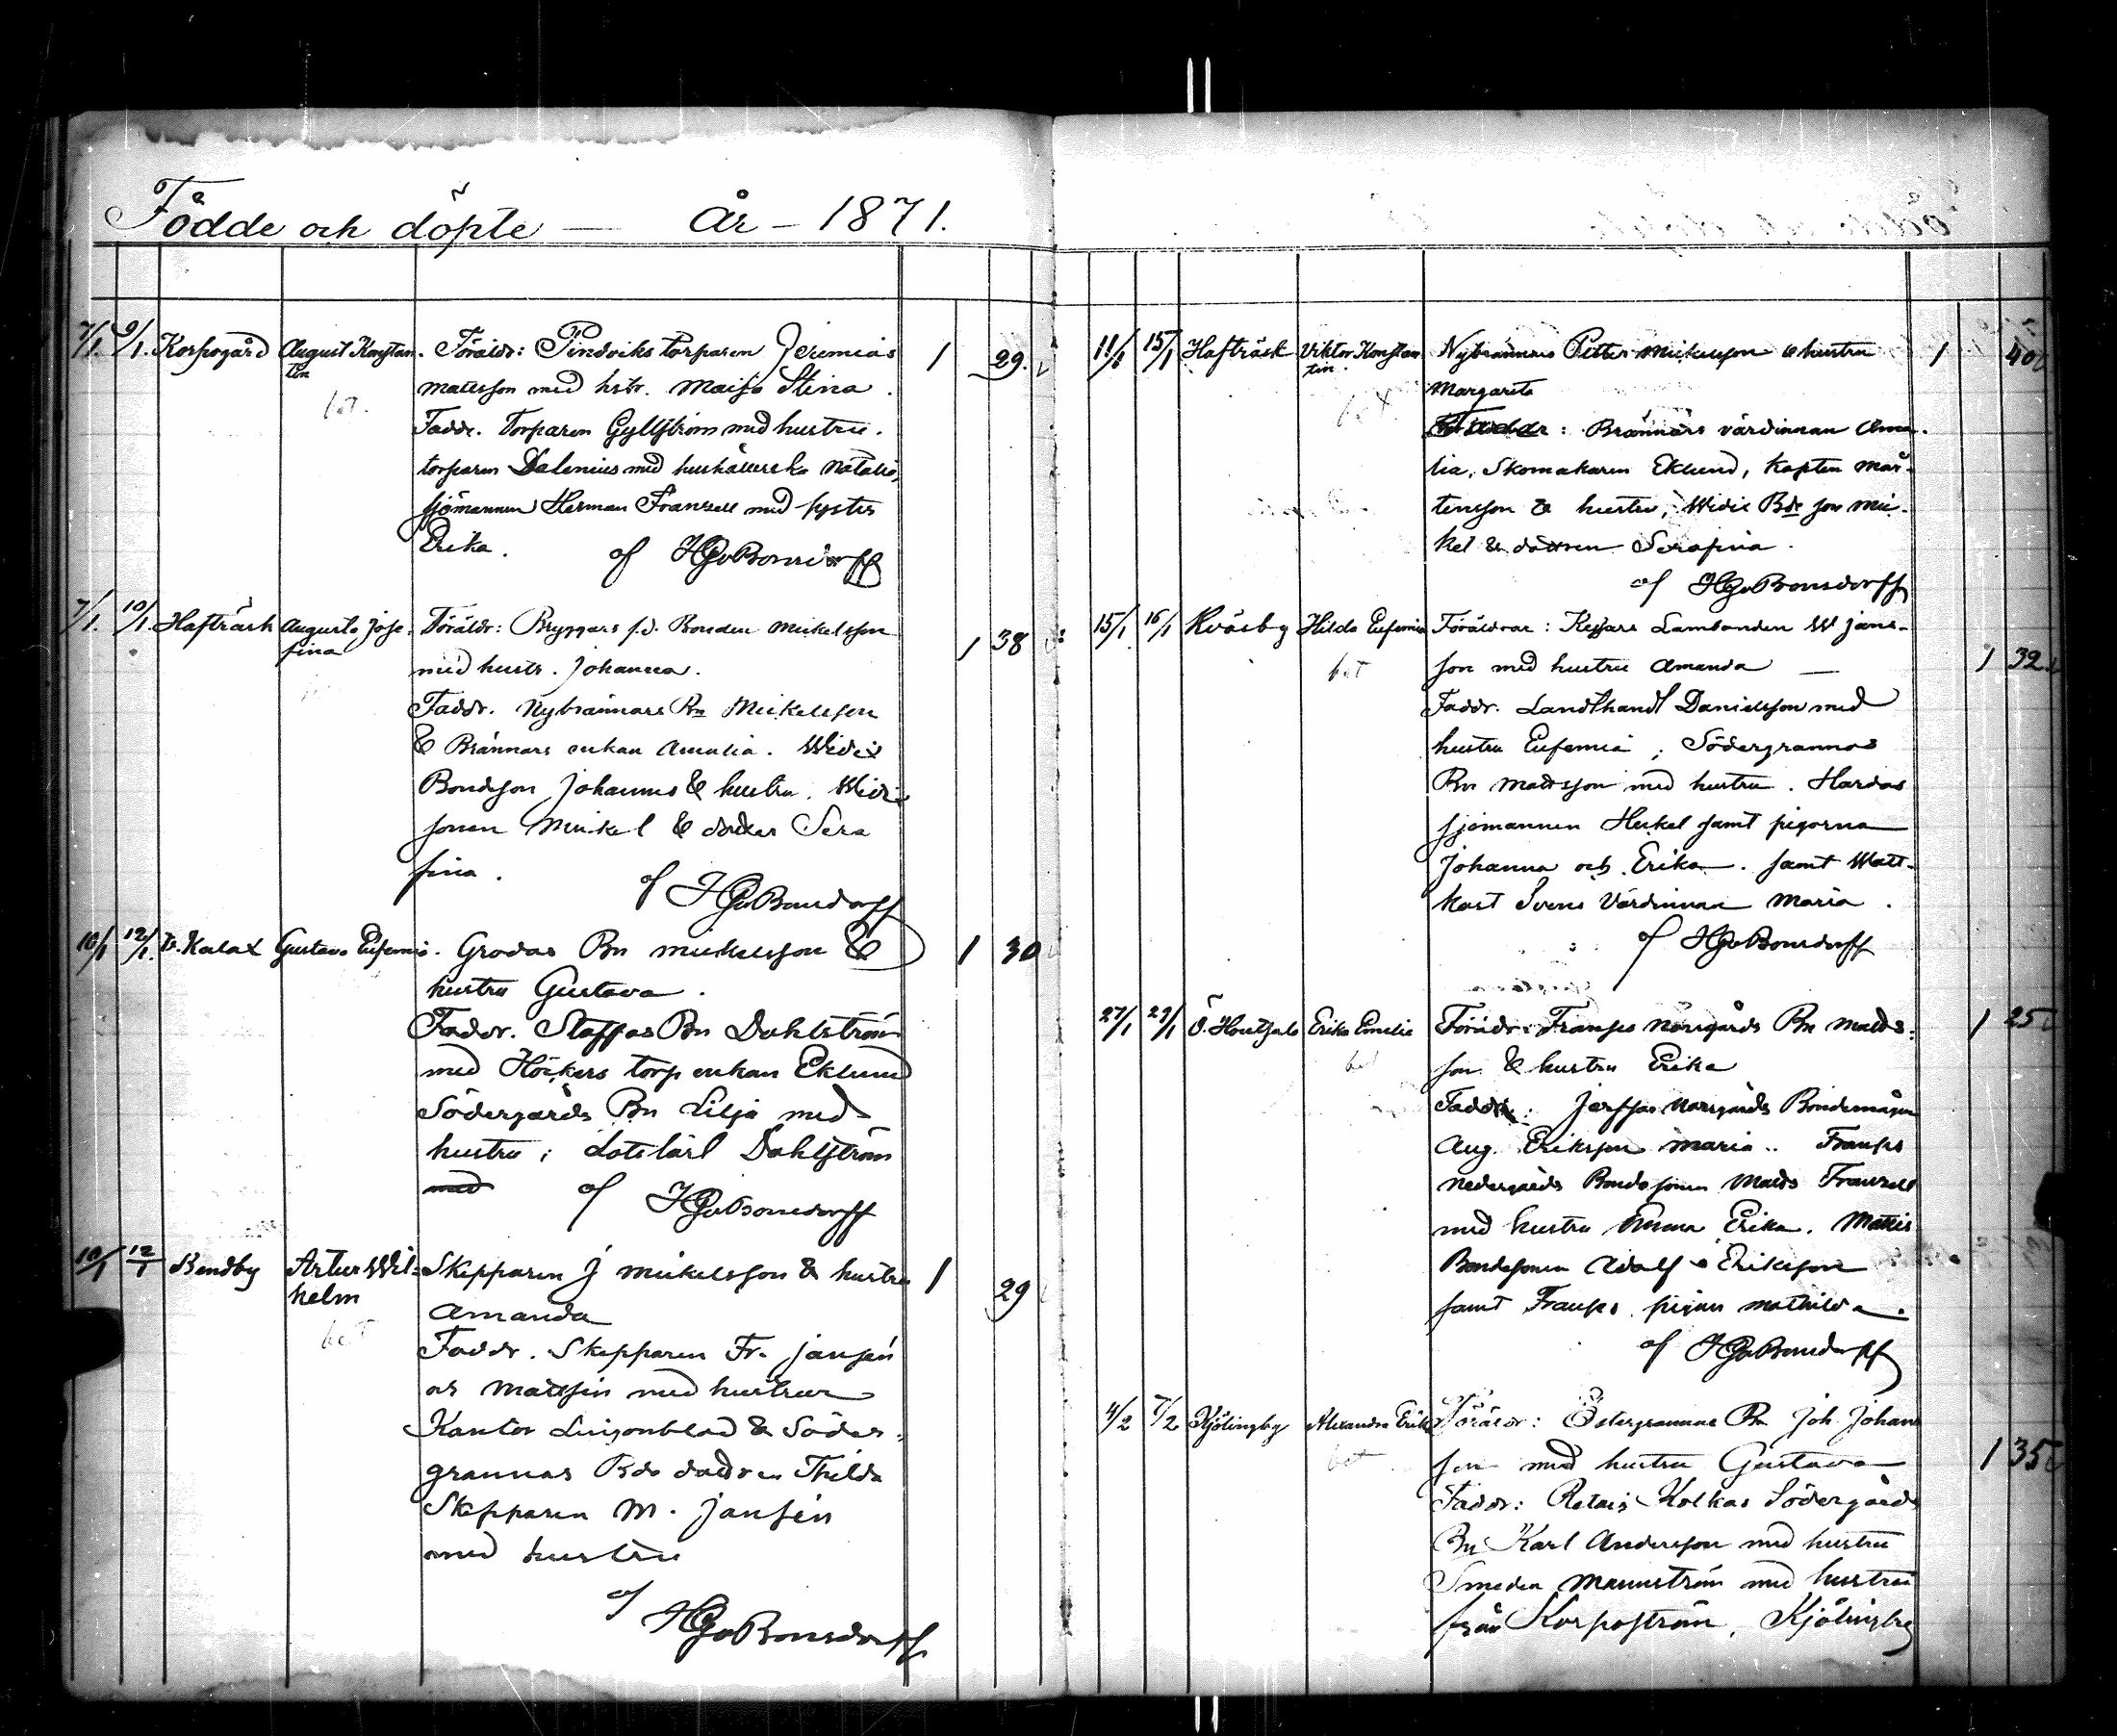 Födde och döpte — År – 1871.
7/1. 9/1. Korpogård August Konstan- Föräldr: Pindviks torparen Jeremias 1 29.
tin mattsson med hstr. Maija Stina.
bet. Faddr. Torparen Gyllström med hustru.
torparen Dalenius med hushållerska Natalia,
sjömannen Herman Franzell med syster
Erika. af HGvBonsdorff
7/1. 10/1. Hafträsk Augusta Jose- Föräldr: Bryggars f.d. Bonden Mickelsson 1 38
fina med hustr. Johanna.
Faddr. Nybrännars Bn Mickelsson
& Brännars enkan Amalia. Widix
Bondeson Johannes & hustru. Widix
sonen Mickel & dotter Sera
fina. af HGvBonsdorff
10/1 12/1. Kalax Gustava Eufemia. Grodas Bn Mickelsson & 1 30
hustru Gustava.
Faddr. Staffas Bn Dahlström
med Höckers torp enkan Eklund
Södergårds Bn Lilja med
hustru; Dahlström
med af HGvBonsdorff
10/1 12/1 Bendby Artur Wil- Skepparen J Mickelsson & hustru 1 29
helm Amanda
bet Faddr. Skepparen Fr. Jansén
och Mattsén med hustrur
Kantor Lingonblad & Söder-
grannas Bds dottren Thilda
Skepparen M. Jansén
med hustru
af HGvBonsdorff
11/1 15/1 Hafträsk Viktor Konstan Nybrännars Petter Mickelsson & hustru 1 40
tin. Margareta
bet Faddr: Brännärs värdinnan Ama-
lia, Skomakaren Eklund, Kapten Mår-
tensson & hustru, Widix Bds son Mic-
kel & dottren Serafina.
af HGvBonsdorff
15/1 16/1 Hilda Eufemia Föräldrar: Lambonden W Jans- 1 32
bet son med hustru Amanda —
Faddr. Landthandl Danielsson med
hustru Eufemia; Södergrannas
Bn Mattsson med hustru. Hardas
sjömannen Heikel samt pigorna
Johanna och Erika. samt Watt-
kast Svens Värdinnan Maria.
af HGvBonsdorff
27/1 29/1 Ö. Houtskala Erika Emelia Föräldr: Franses Norrgårds Bn Matts- 1 25
bet son & hustru Erika
Faddr: Norrgårds Bondemågen
Aug. Eriksson Maria.. Franses
Nedergårds Bondesonen Matts Franzell
med hustru Emma Erika. Matts
Bondesonen Adolf Eriksson
samt Franses pigan Mathilda.
af HGvBonsdorff
4/2 7/2 Kjölingby Alexandra Erika Föräldr: Östergrannas Bn Joh. Johans 1 35
bet son med hustru Gustava
Faddr: Retais Kolkas Södergårds
Bn Karl Andersson med hustru
Smeden Mannström med hustru
från Korpoström, Kjölingby